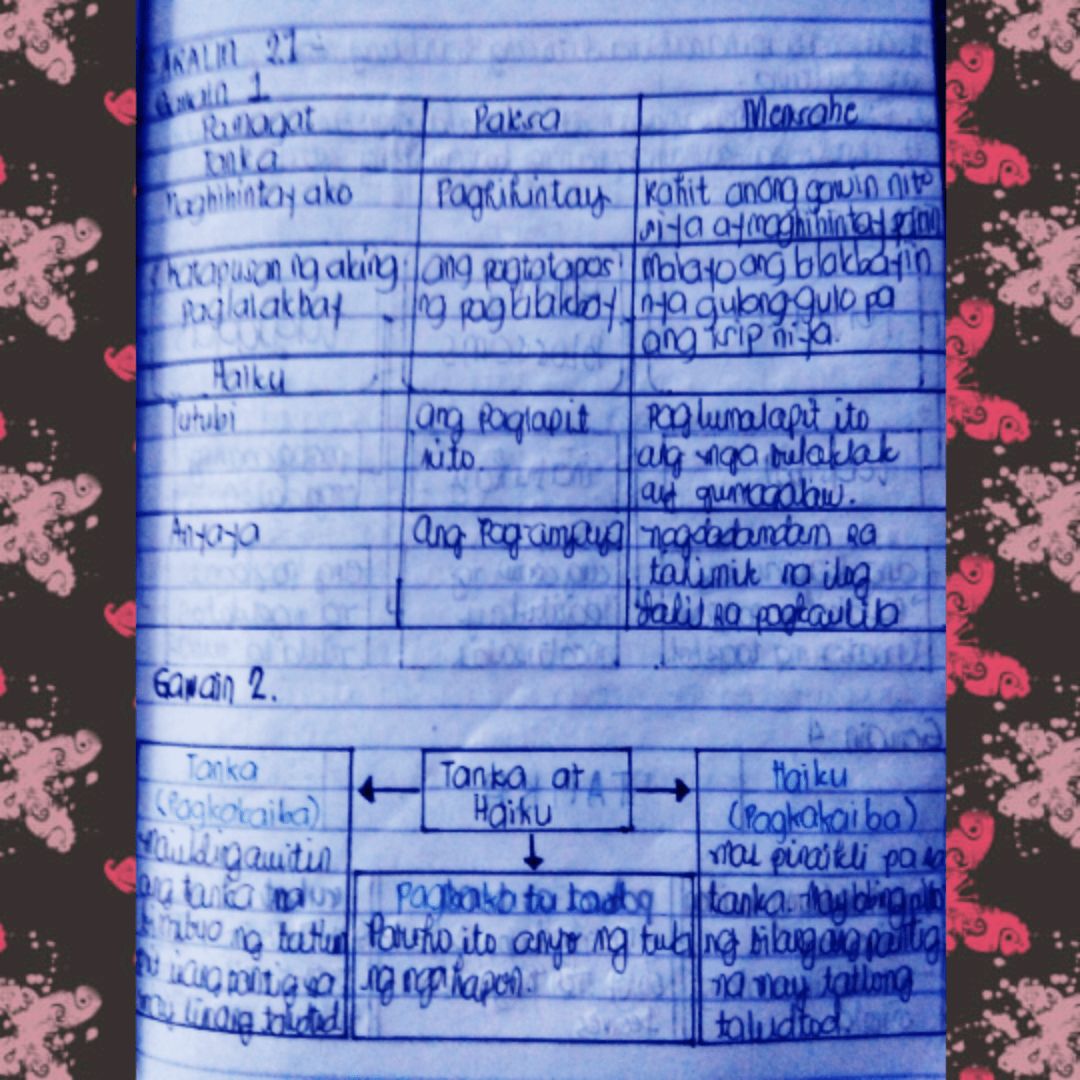 ARALIN 2.1
Gawain 1
Pamagat Paksa Mensahe
Tanka
Maghihintay ako Paghihintay Kahit anong gawin nito
siya ay maghihintay parin
Katapusan ng aking ang pagtatapos malayo ang
Paglalakbay ng paglalakbay nya gulong-gulo pa
ang isip niya.
Haiku
Tutubi ang Paglapit Pag lumalapit ito
nito. ang mga bulaklak
ay gumagalaw.
Anyaya Ang Pag-anyaya nagdadamdam sa
talimik na ilog
dahil sa
Gawain 2.
Tanka Tanka at Haiku
(Pagkakaiba) Haiku (Pagkakaiba)
Maiikling awitin mas pinaikli pa sa
ang tanka na Pagkakatulad tanka. May
ng tatlum Pareho ito anyo ng tula ng bilang ang pantig
isang pantig sa ng mga hapon. na may tatlong
may limang taludtod taludtod.